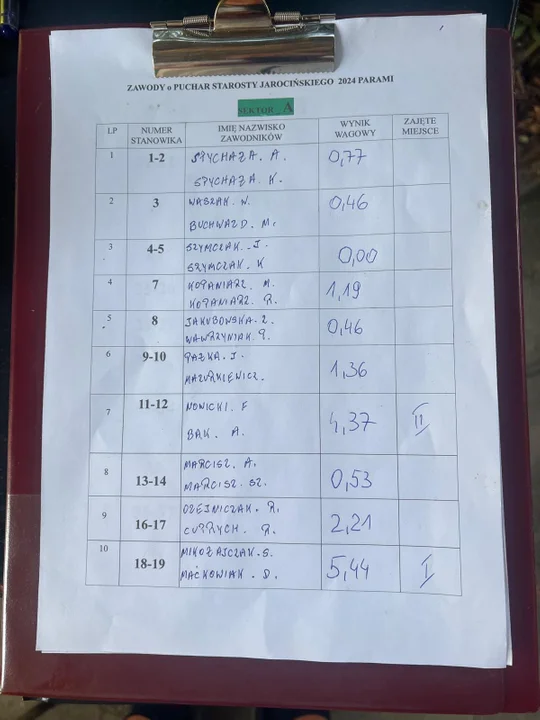 ZAWODY o PUCHAR STAROSTY JAROCIŃSKIEGO 2024 PARAMI
SEKTOR_ A
LP NUMER STANOWIKA IMIĘ NAZWISKO ZAWODNIKÓW WYNIK WAGOWY ZAJĘTE MIEJSCE
1 1-2 SPYCHAŁA. A. 0,77
SPYCHAŁA. K.
2 3 WASZAK. N. 0,46
BUCHWALD. M.
3 4-5 SZYMCZAK. J. 0,00
SZYMCZAK. K
4 7 KOPANIARZ. M. 1,19
KOPANIARZ. R.
5 8 JAKUBOWSKA. Z. 0,46
WAWRZYNIAK. P.
6 9-10 PAŁKA. J. 1,36
MAZURKIEWICZ.
7 11-12 NOWICKI. F 4,37 II
BĄK. A.
8 13-14 MARCISZ. A. 0,53
MARCISZ. SZ.
9 16-17 OLEJNICZAK. R. 2,21
CUPRYCH. R.
10 18-19 MIKOŁAJCZAK. S. 5,44 I
MAĆKOWIAK. D.